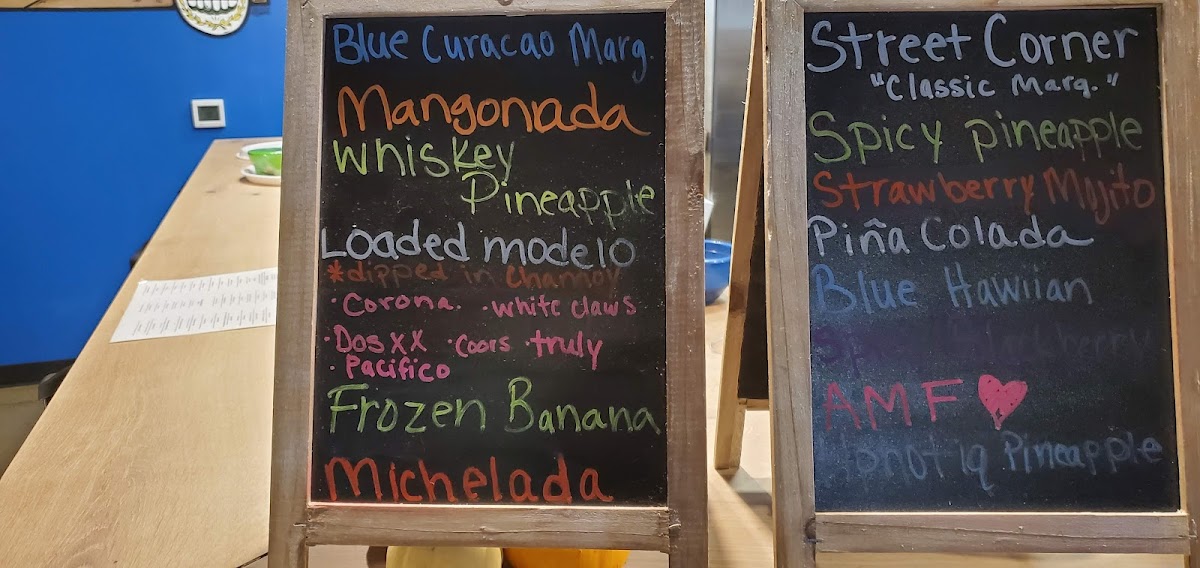 Blue Curacao Marg.
Mangonada
Whiskey
Pineapple
Loaded modelo
*dipped in Chamoy
· Corona. · white claws
· Dos XX · Coors · truly
· Pacifico
Frozen Banana
Michelada
Street Corner
"Classic Marg."
Spicy pineapple
Strawberry Mojito
Piña Colada
Blue Hawiian
AMF
Pineapple